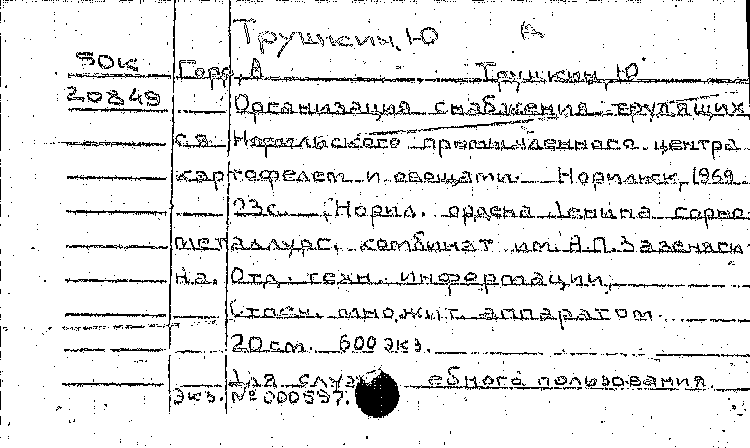 Трушкин, Ю
50к Горр, А Трушкин, Ю
20849 Организация снабжения трудящих
ся Норильского промышленного центра
картофелем и овощами. Норильск, 1969.
23с. (Норил. ордена Ленина горно
металлург. комбинат им. А.П. Завеняги
на. Отд. техн. информации)
Стекл. множит. аппаратом.
20см. 600 экз.
Для служебного пользования
экз. № 000597.